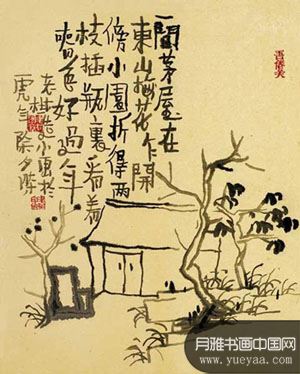 一間茅屋在
東山梅花乍開
傍小園折得兩
枝插瓶裏看着
春色好過年
老樹造小畫於
虎年除夕際
月雅书画中国网
www.yueyaa.com